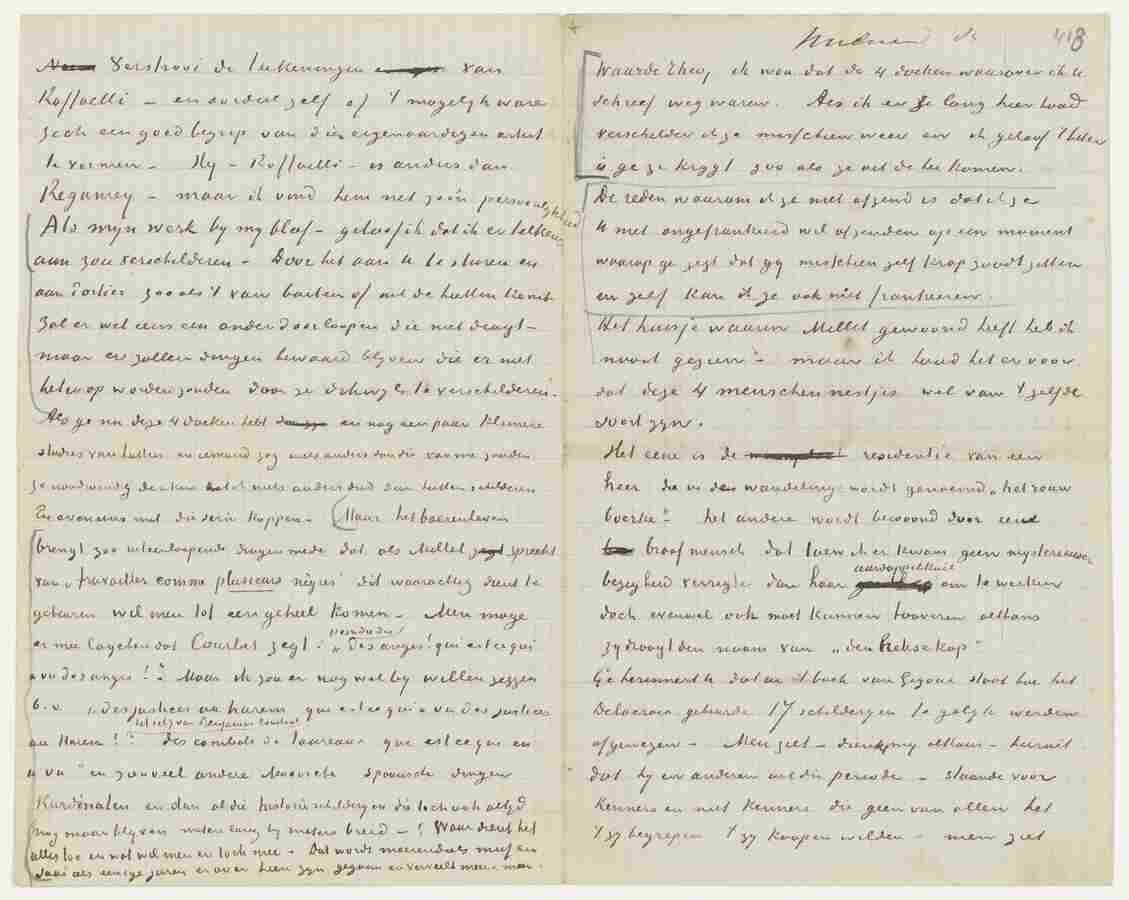 Verstrooi de teekeningen van
Raffaelli – en oordeel zelf of 't mogelijk ware
zich een goed begrip van dien eigenaardigen artist
te vormen – Hij – Raffaelli – is anders dan
Regamey – maar ik vind hem net zoo'n persoonlijkheid
Als mijn werk bij mij bleef – geloof ik dat ik er telkens
aan zou verschilderen – Door het aan U te sturen en
aan Portier zooals 't van buiten of uit de hutten komt
zal er wel eens een onder doorloopen die niet deugt –
maar er zullen dingen bewaard blijven die er niet
beter op worden zouden door ze dikwijls te verschilderen.
Als ge nu deze 4 doeken hebt en nog een paar kleinere
studies van hutten en iemand zag niets anders dan die van me zouden
ze noodwendig denken dat ik niets anders deed dan hutten schilderen
En evenzoo met die serie koppen – Maar het boerenleven
brengt zoo uiteenloopende dingen mede dat als Millet spreekt
van „travailler comme plusieurs nègres" dit waarachtig dient te
gebeuren wil men tot een geheel komen – Men moge
er mee lagchen dat Courbet zegt: „peindre des
anges! qui est ce qui
a vu des anges!" Maar ik zou er nog wel bij willen zeggen
b.v. „des justices au harem qui est ce qui a vu des justices
het schij van Benjamin Constant
au Harem!" Des combats de taureaux qui est ce qui en
a vu" en zooveel andere Moorsche spaansche dingen
Kardinalen en dan al die historieschilderijen die toch ook altijd
nog maar blijven meters hoog bij meters breed –! Waar dient het
alles toe en wat wil men er toch mee – Dat wordt meerendeels muf en
saai als eenige jaren er over heen zijn gegaan en verveelt meer & meer.
418
Waarde Theo, ik wou dat de 4 doeken waarover ik U
schreef weg waren. Als ik er ze lang hier houd
verschilder ik ze misschien weer en ik geloof 't beter
is ge ze krijgt zoo als ze uit de hei komen.
De reden waarom ik ze niet afzend is dat ik ze
U niet ongefrankeerd wil afzenden op een moment
waarop ge zegt dat gij misschien zelf krap zoudt zitten
en zelf kan ik ze ook niet frankeeren.
Het huisje waarin Millet gewoond heeft heb ik
nooit gezien – maar ik houd het er voor
dat deze 4 menschennestjes wel van 't zelfde
soort zijn.
Het eene is de residentie van een
heer die in de wandeling wordt genoemd „het rouw
boerke" – het andere wordt bewoond door een
braaf mensch dat toen ik er kwam geen mysterieuser
bezigheid verrigtte dan haar aardappelkuil om te werken
doch evenwel ook moet kunnen tooveren althans
zij draagt den naam van „den heksekop"
Ge herinnert U dat in 't boek van Gigoux staat hoe het
Delacroix gebeurde 17 schilderijen te gelijk werden
afgewezen – Men ziet – dunkt mij althans – hieruit
dat hij en anderen uit die periode – staande voor
kenners en niet kenners die geen van allen het
't zij begrepen 't zij koopen wilden – men ziet